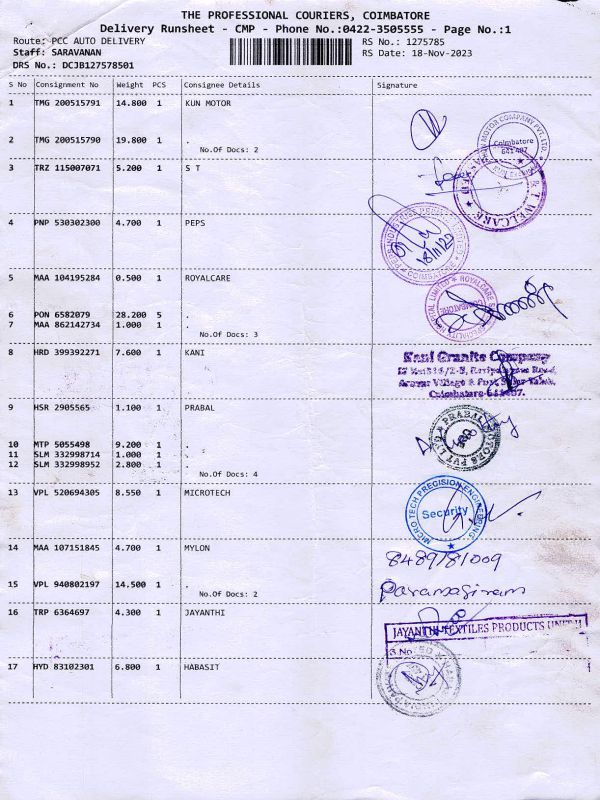 THE PROFESSIONAL COURIERS, COIMBATORE
Delivery Runsheet - CMP - Phone No.:0422-3505555 - Page No.:1
Route: PCC AUTO DELIVERY
RS No.: 1275785
Staff: SARAVANAN
RS Date: 18-Nov-2023
DRS No.: DCJB127578501
S No Consignment No Weight PCS Consignee Details Signature
1 TMG 200515791 14.800 1 KUN MOTOR
2 TMG 200515790 19.800 1 .
No.Of Docs: 2
Coimbatore
641407
3 TRZ 115007071 5.200 1 S T
WELCARE
4 PNP 530302300 4.700 1 PEPS
18/11/23
COIMBATORE
5 MAA 104195284 0.500 1 ROYALCARE
6 PON 6582079 28.200 5 .
7 MAA 862142734 1.000 1 .
No.Of Docs: 3
8 HRD 399392271 7.600 1 KANI
Kani Granite Company
Coimbatore-641407.
9 HSR 2905565 1.100 1 PRABAL
PRABAL MOTORS PVT LTD
10 MTP 5055498 9.200 1 .
11 SLM 332998714 1.000 1 .
12 SLM 332998952 2.800 1 .
No.Of Docs: 4
13 VPL 520694305 8.550 1 MICROTECH
MICRO TECH PRECISION ENGINEERING
Security
14 MAA 107151845 4.700 1 MYLON
8489181009
15 VPL 940802197 14.500 1 .
No.Of Docs: 2
Paramasivam
16 TRP 6364697 4.300 1 JAYANTHI
JAYANTHI TEXTILES PRODUCTS UNIT II
S.No
17 HYD 83102301 6.800 1 HABASIT